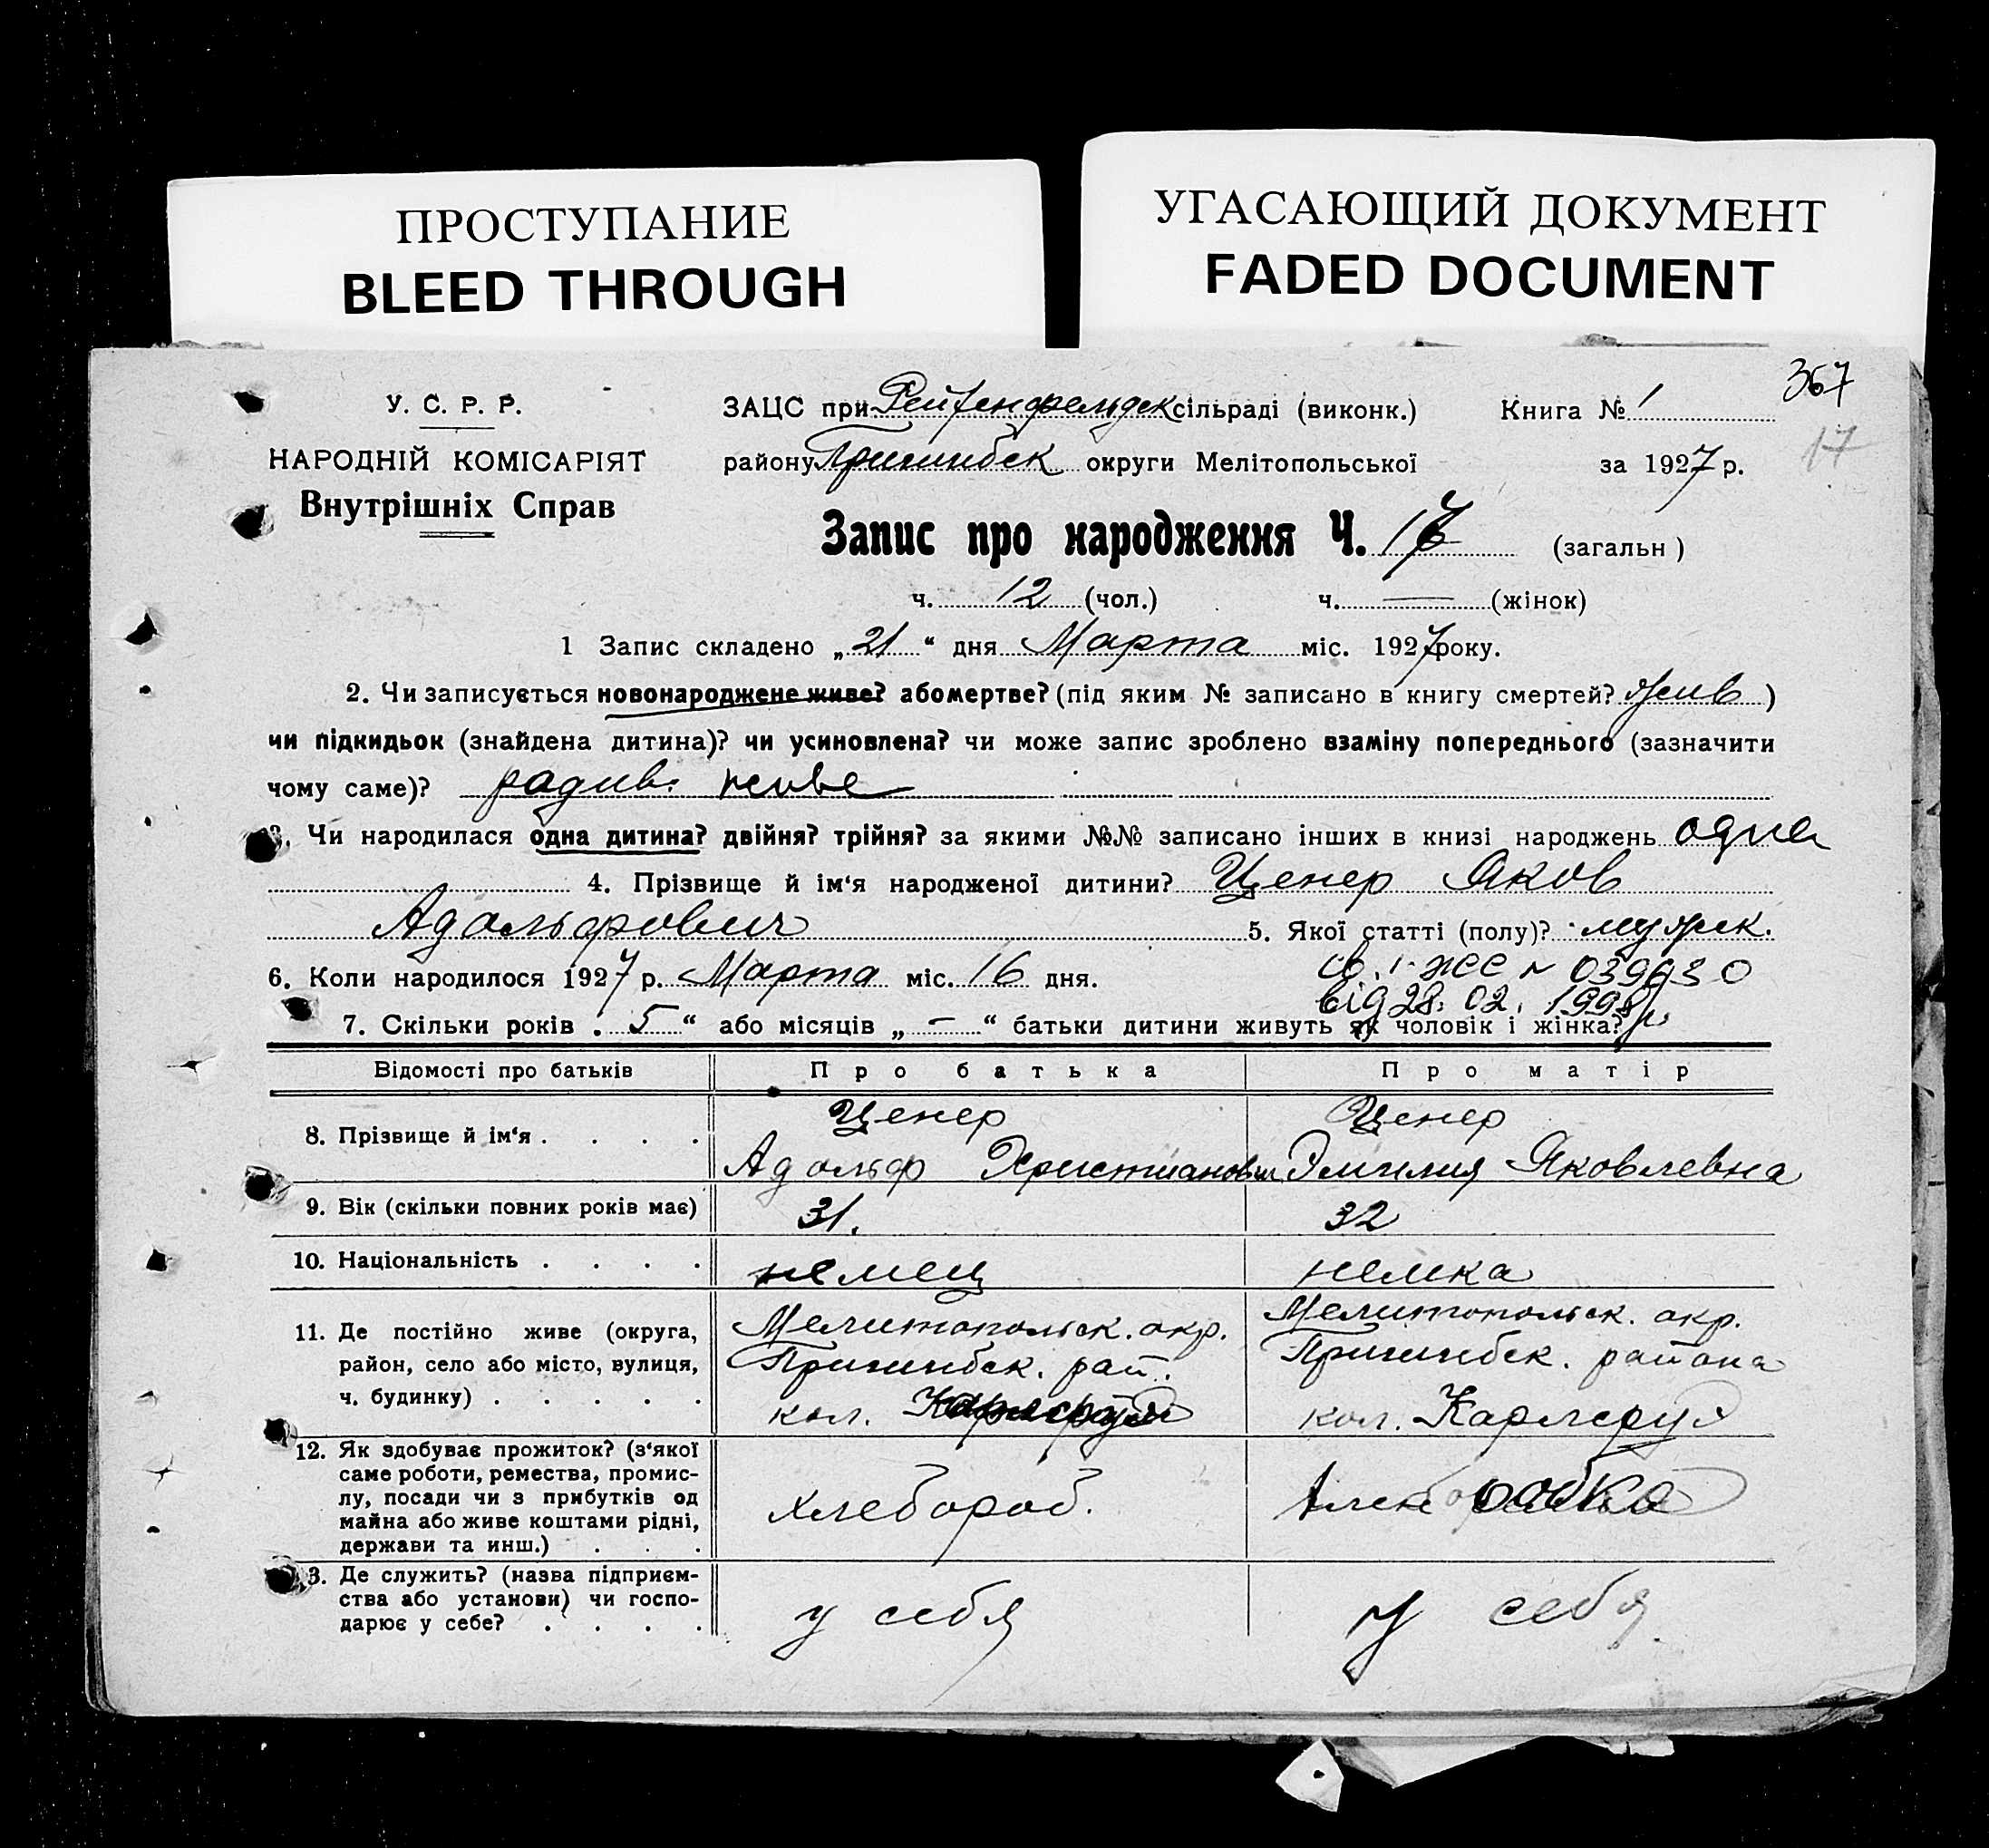 ПРОСТУПАНИЕ
BLEED THROUGH
УГАСАЮЩИЙ ДОКУМЕНТ
FADED DOCUMENT
367
17
У. С. Р. Р.
НАРОДНІЙ КОМІСАРІЯТ
Внутрішніх Справ
ЗАЦС при Рейхенфельдск сільраді (виконк.) Книга № 1
району Пришибск округи Мелітопольської за 1927 р.
Запис про народження Ч. 17 (загальн )
ч. 12 (чол.) ч. — (жінок)
1 Запис складено „21“ дня Марта міс. 1927 року.
2. Чи записується новонароджене живе? або мертве? (під яким № записано в книгу смертей? жив )
чи підкидьок (знайдена дитина)? чи усиновлена? чи може запис зроблено взаміну попереднього (зазначити
чому саме)? живе
3. Чи народилася одна дитина? двійня? трійня? за якими №№ записано інших в книзі народжень одна
4. Прізвище й ім‘я народженої дитини? Ценер Яков
Адольфович 5. Якої статті (полу)? мужск.
6. Коли народилося 1927 р. Марта міс. 16 дня.
від 28. 02. 1998 р.
7. Скільки років „5“ або місяців „—“ батьки дитини живуть як чоловік і жінка?
Відомості про батьків Про батька Про матір
8. Прізвище й ім‘я . . . . Ценер Адольф Христианович Ценер Эмилия Яковлевна
9. Вік (скільки повних років має) 31. 32
10. Національність . . . . немец немка
11. Де постійно живе (округа, район, село або місто, вулиця, ч. будинку) . . . . . Мелитопольск. окр. Пришибск. рай. кол. Карлсруэ Мелитопольск. окр. Пришибск. района кол. Карлсруэ
12. Як здобуває прожиток? (з‘якої саме роботи, ремества, промислу, посади чи з прибутків од майна або живе коштами рідні, держави та инш.) . . . хлебороб.
13. Де служить? (назва підприємства або установи) чи господарює у себе? . . . . у себя у себя